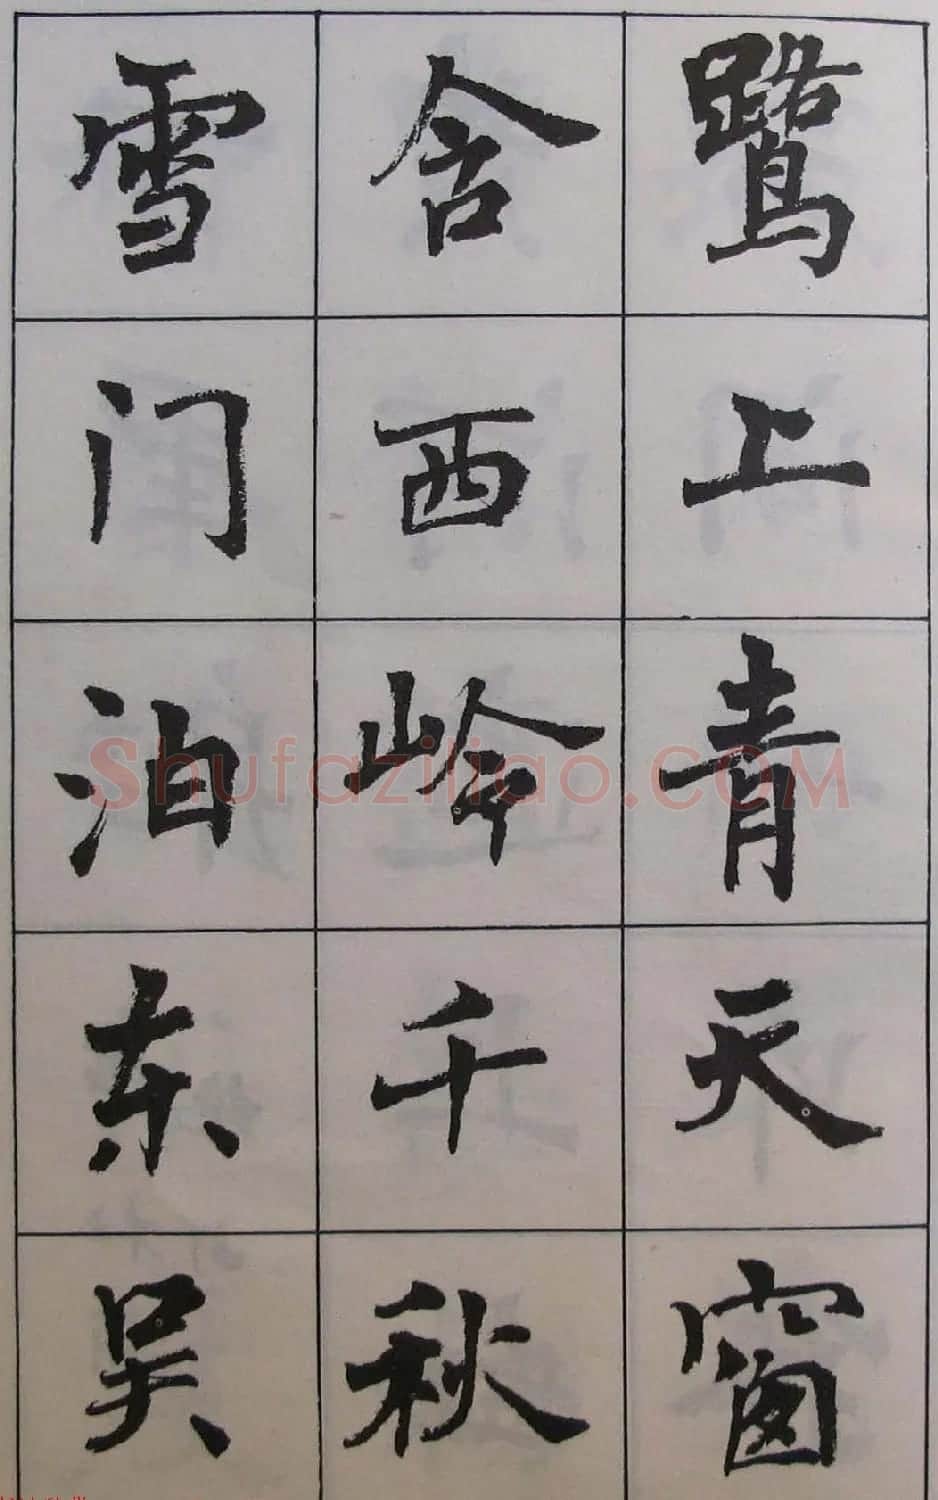 鹭上青天窗
含西岭千秋
雪门泊东吴
Shufaziliao.COM